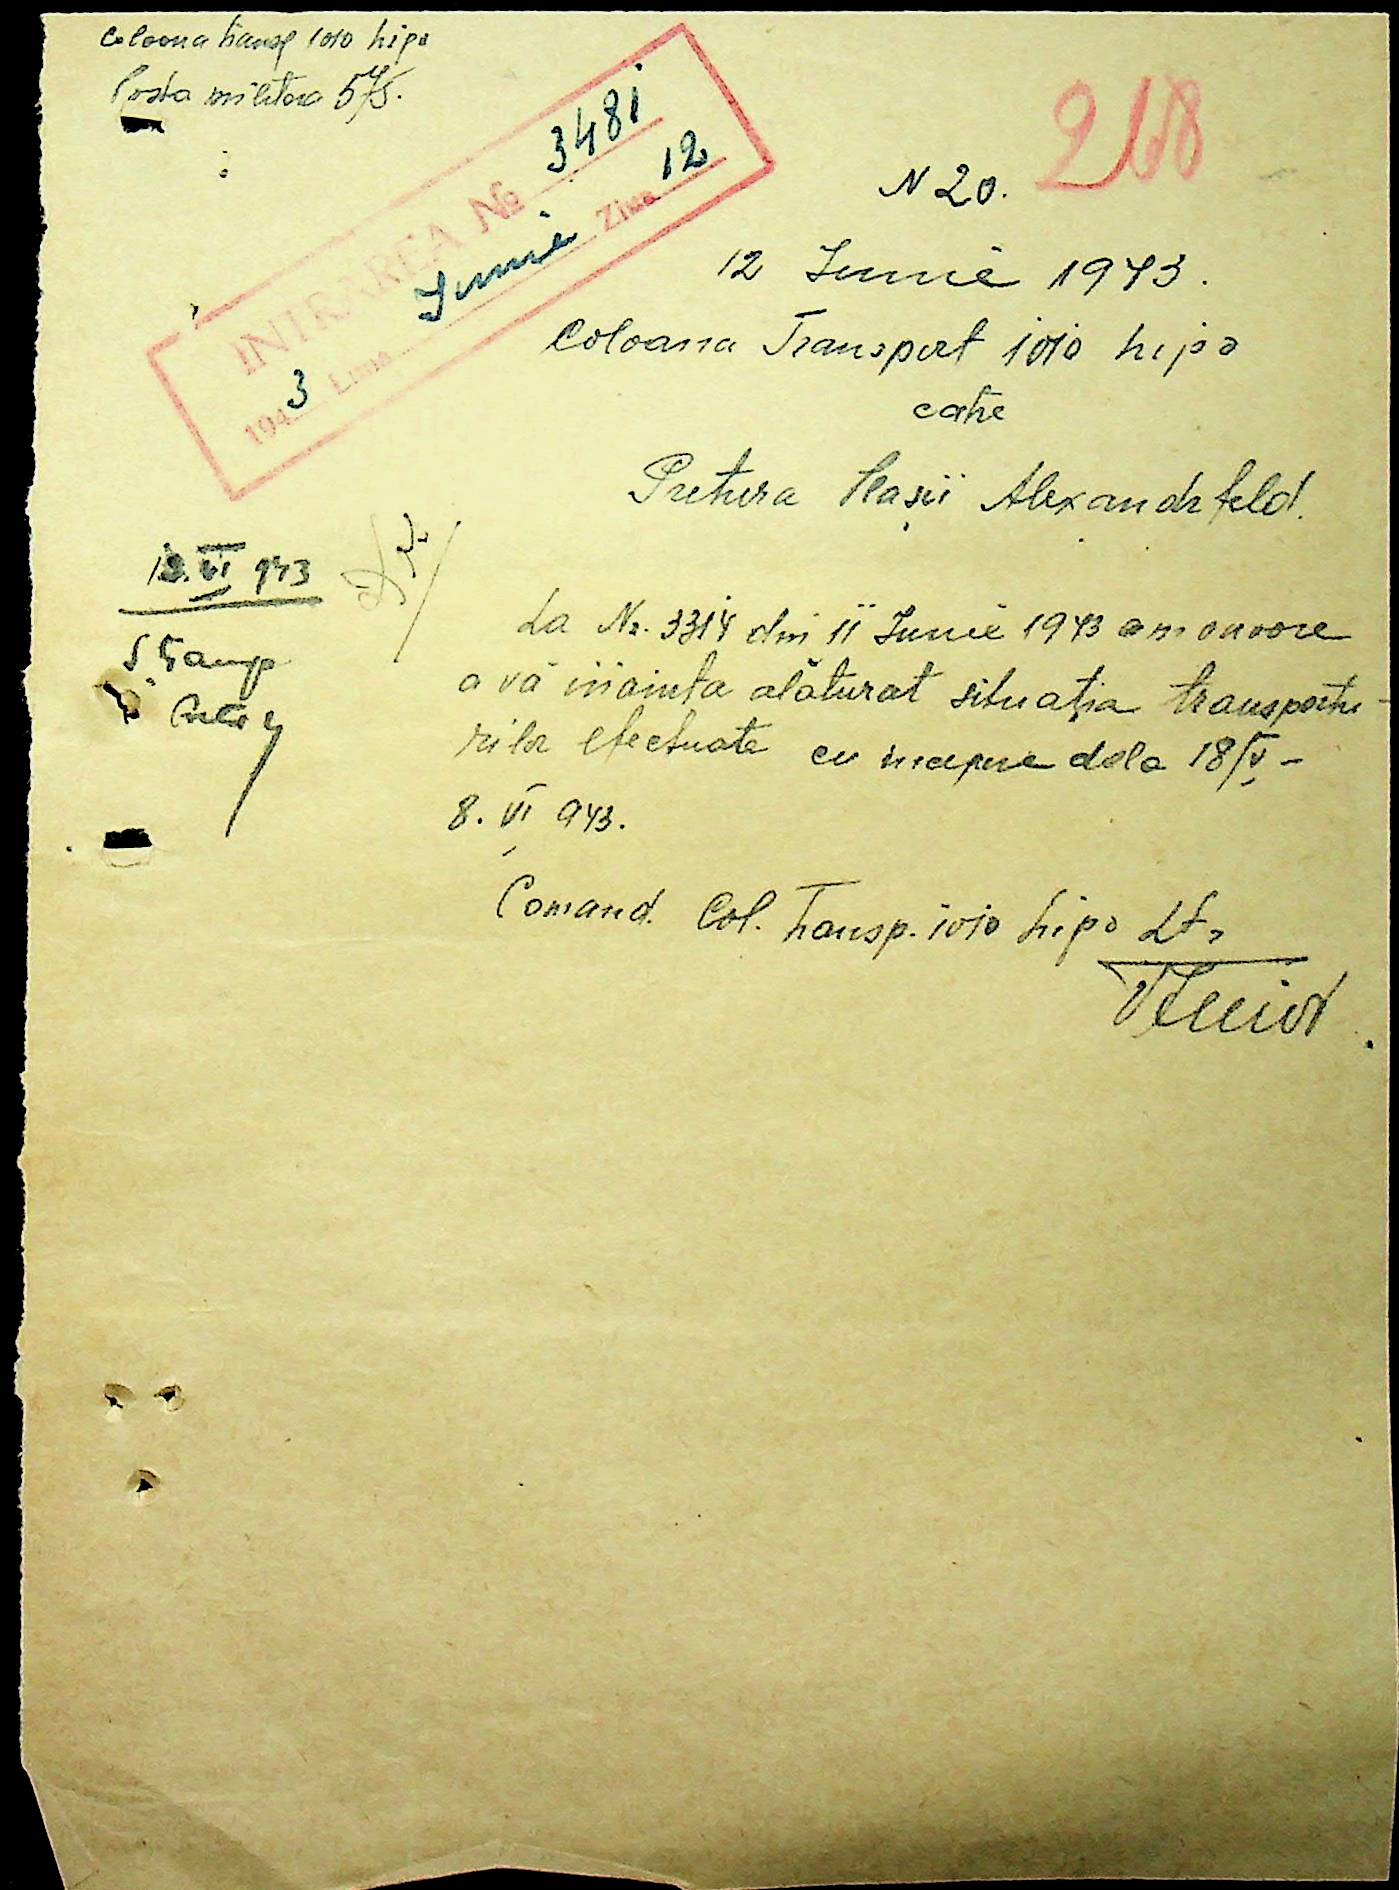 Coloana transp 1010 hipo
Posta militara 575.
INTRAREA № 3481
1943 Luna Iunie Ziua 12
218
N 20.
12 Iunie 1943.
Coloana Transport 1010 hipo
catre
Pretura Plasii Alexandrfeld.
12.VI 943
La No. 3314 din 11 Iunie 1943 am onoare
a vă inainta alăturat situația transportu-
rilor efectuate cu incepere dela 18/V -
8. VI 943.
Comand. Col. transp. 1010 hipo Lt.